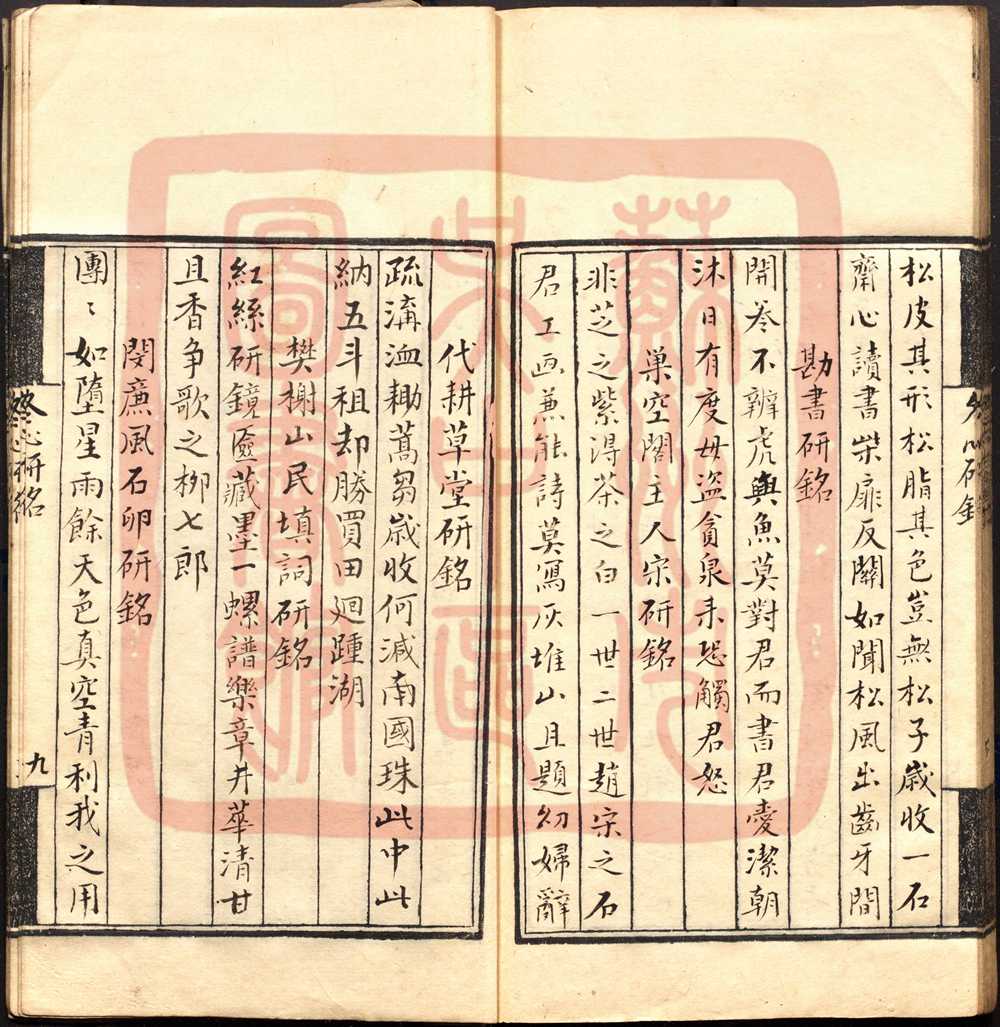 松皮其形松脂其色豈無松子歲收一石
齋心讀書柴扉反關如聞松風出齒牙間
勘書研銘
開卷不辨虎與魚莫對君而書君愛潔朝
沐日有度毋盜貪泉來恐觸君怒
巢空閣主人宋研銘
非芝之紫淂茶之白一世二世趙宋之石
君工画兼能詩莫寫灰堆山且題幼婦辭
代耕草堂研銘
疏溝洫耡蒿芻歲收何減南國珠此中此
納五斗租却勝買田廻踵湖
樊榭山民填詞研銘
紅絲研鏡匳藏墨一螺譜樂章井華清甘
且香争歌之栁七郎
閔㢘風石卵研銘
團〻如墮星雨餘天色真空青利我之用
冬心研銘
九